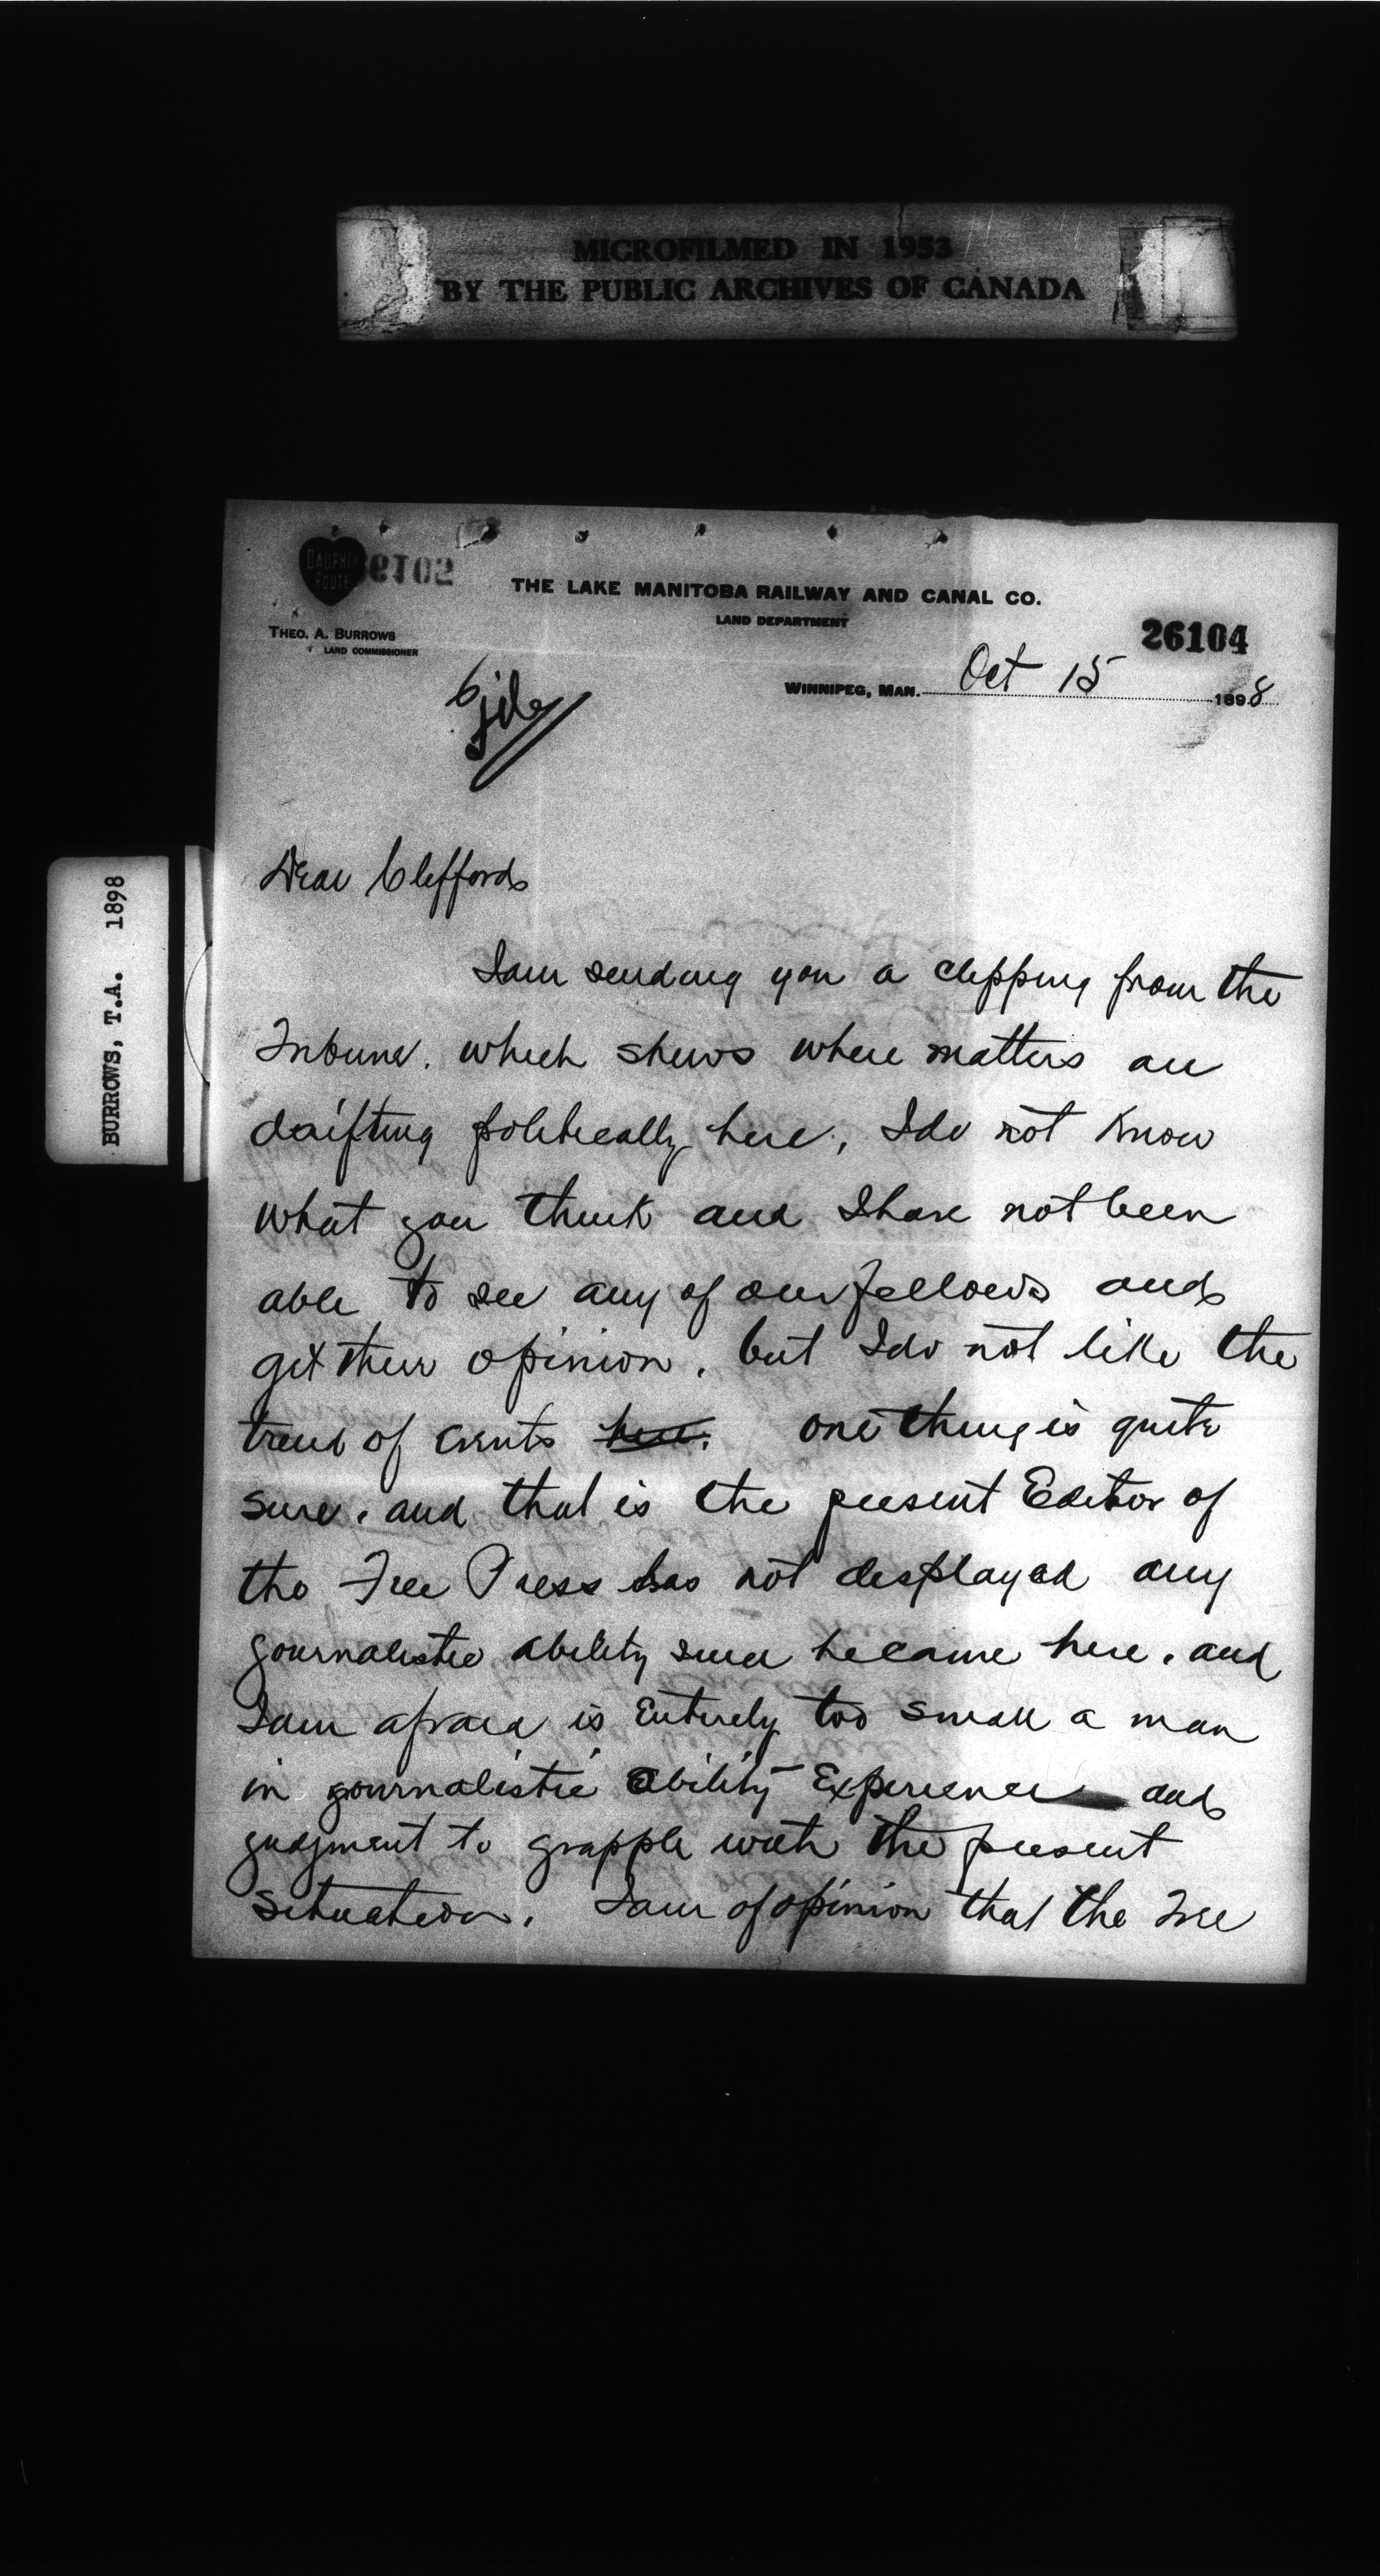 MICROFILMED IN 1953
BY THE PUBLIC ARCHIVES OF CANADA
BURROWS, T.A. 1898
DAUPHIN
ROUTE
THE LAKE MANITOBA RAILWAY AND CANAL CO.
LAND DEPARTMENT
26104
THEO. A. BURROWS
LAND COMMISSIONER
WINNIPEG, MAN. Oct 15 1898
file
Dear Clifford
I am sending you a clipping from the
Tribune. which shews where matters are
drifting politically here, I do not know
what you think and I have not been
able to see any of our fellows and
get their opinion. but I do not like the
trend of events here. one thing is quite
sure. and that is the present Editor of
the Free Press has not displayed any
journalistic ability since he came here. and
I am afraid is Entirely too small a man
in journalistic ability Experience and
judgment to grapple with the present
situation. I am of opinion that the Free